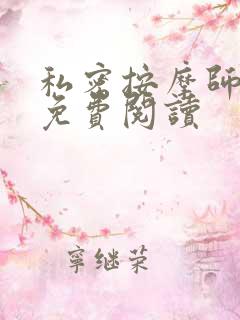 私密按摩师
免費閱讀
寧继荣